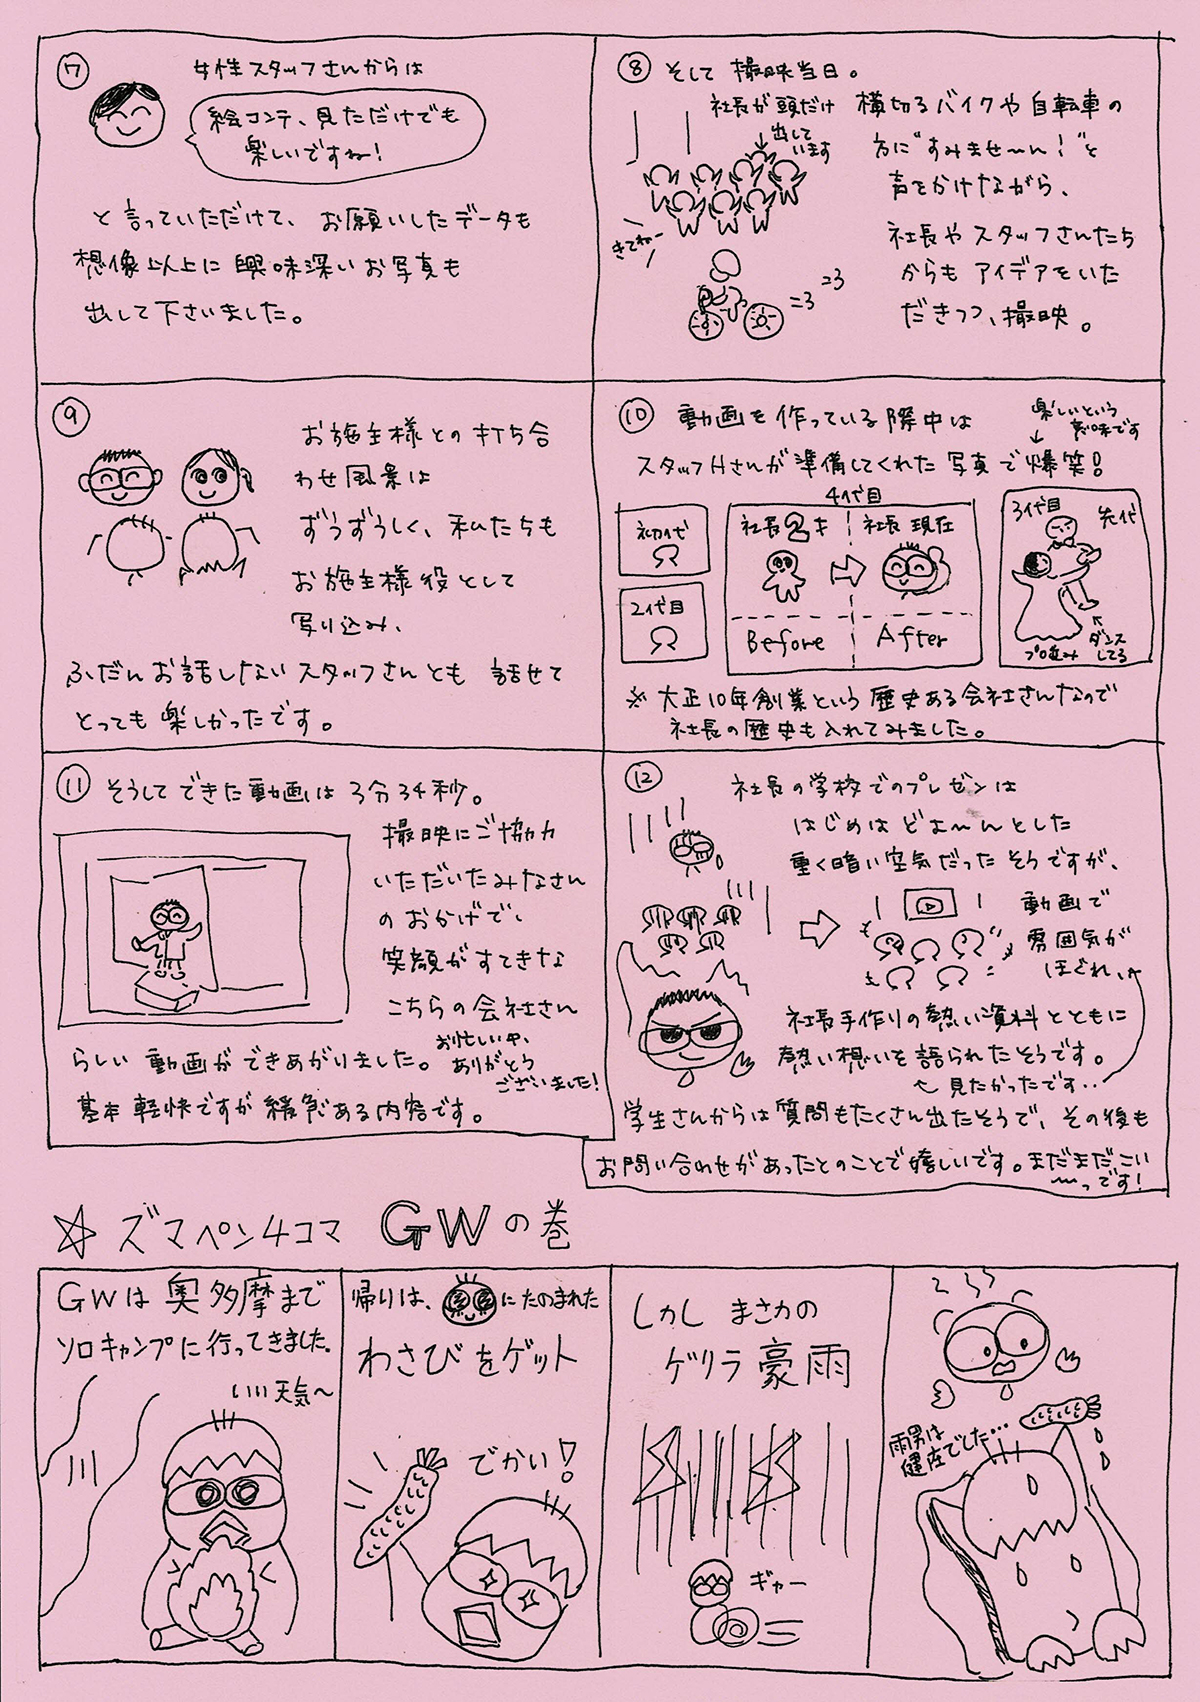 ⑦ 女性スタッフさんからは
絵コンテ、見ただけでも
楽しいですね！
と言っていただけて、お願いしたデータも
想像以上に興味深いお写真も
出して下さいました。
⑧ そして撮映当日。
社長が頭だけ
出して
います
きてねー
=3 =3
横切るバイクや自転車の
方に"すみませ〜ん！"と
声をかけながら、
社長やスタッフさんたち
からもアイデアをいた
だきつつ、撮映。
⑨ お施主様との打ち合
わせ風景は
ずうずうしく、私たちも
お施主様役として
写り込み、
ふだんお話しないスタッフさんとも 話せて
とっても楽しかったです。
⑩ 動画を作っている際中は
楽しいという
意味です
スタッフHさんが準備してくれた写真で爆笑！
初代
2代目
4代目
社長2才
社長現在
Before
After
3代目
先代
プロ並み
ダンス
してる
※大正10年創業という歴史ある会社さんなので
社長の歴史も入れてみました。
⑪ そうしてできた動画は3分34秒。
撮映にご協力
いただいたみなさん
のおかげで、
笑顔がすてきな
こちらの会社さん
らしい動画ができあがりました。
お忙しい中、
ありがとう
ございました！
基本軽快ですが緩急ある内容です。
⑫ 社長の学校でのプレゼンは
はじめはどよ〜んとした
重く暗い空気だったそうですが、
動画で
雰囲気が
ほぐれ、
社長手作りの熱い資料とともに
熱い想いを語られたそうです。
見たかったです‥
学生さんからは質問もたくさん出たそうで、その後も
お問い合わせがあったとのことで嬉しいです。まだまだこい
〜っです！
☆ ズマペン4コマ GWの巻
GWは奥多摩まで
ソロキャンプに行ってきました。
いい天気〜
帰りは、にたのまれた
わさびをゲット
でかい！
しかし まさかの
ゲリラ豪雨
ギャー
雨男は
健在でした…